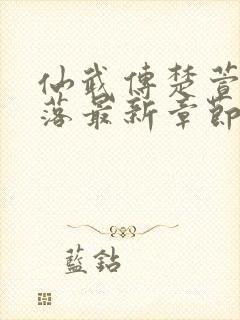 仙武傳楚萱
落最新章節
藍鉆